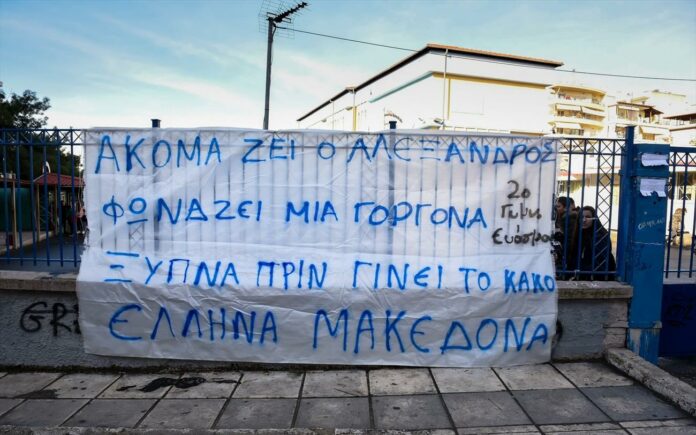 ΑΚΟΜΑ ΖΕΙ Ο ΑΛΕΞΑΝΔΡΟΣ
ΦΩΝΑΖΕΙ ΜΙΑ ΓΟΡΓΟΝΑ
2ο
Γυμν.
Ευόσμου
ΞΥΠΝΑ ΠΡΙΝ ΓΙΝΕΙ ΤΟ ΚΑΚΟ
ΕΛΛΗΝΑ ΜΑΚΕΔΟΝΑ